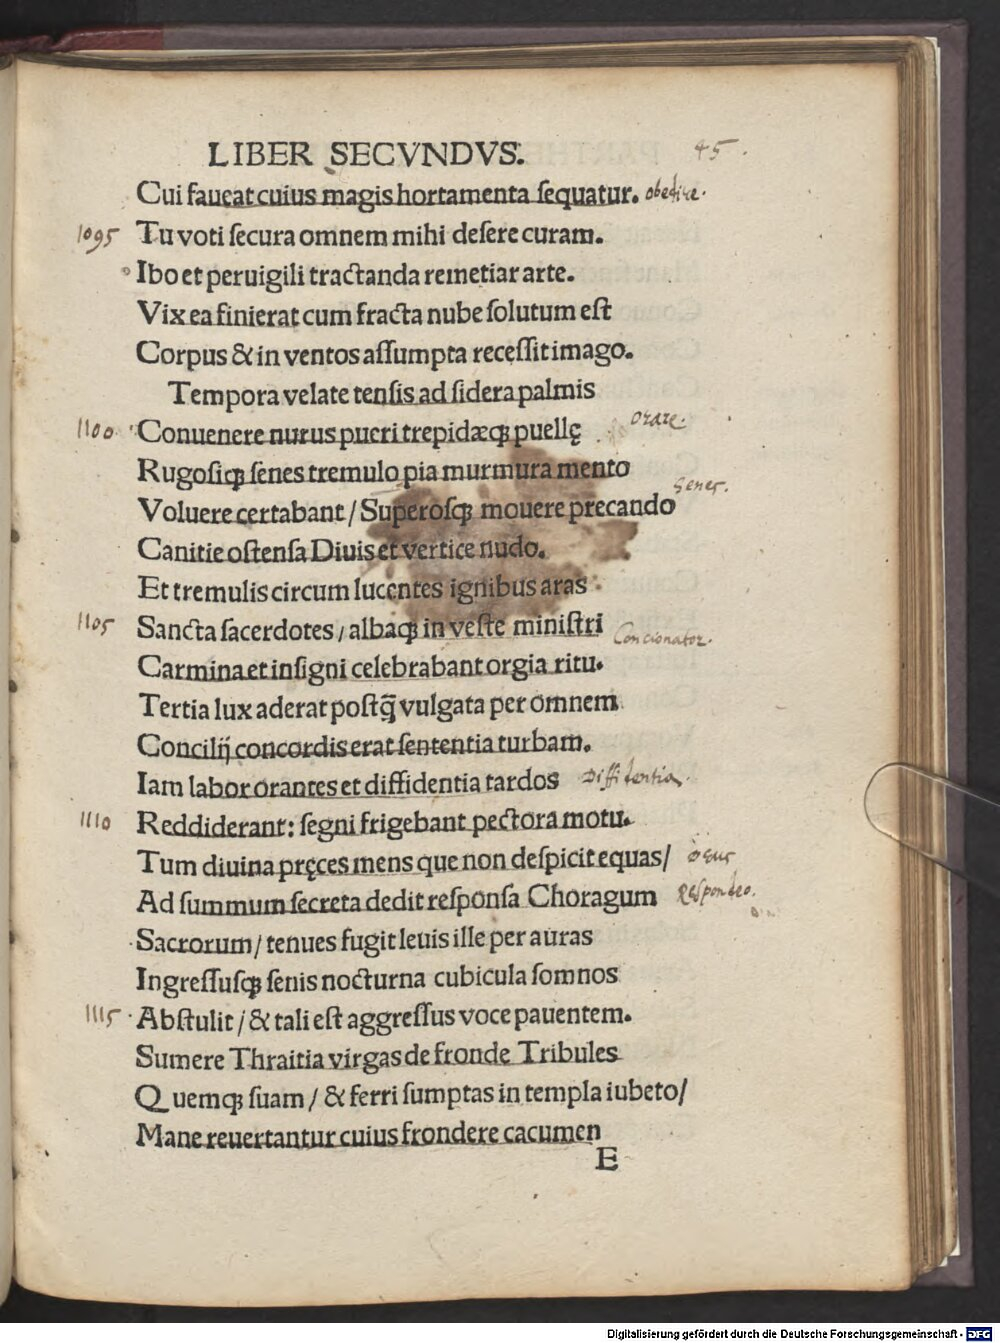 LIBER SECVNDVS. 45.
Cui faueat cuius magis hortamenta ſequatur. obedire.
1095 Tu voti ſecura omnem mihi deſere curam.
Ibo et peruigili tractanda remetiar arte.
Vix ea finierat cum fracta nube ſolutum eſt
Corpus & in ventos aſſumpta receſſit imago.
Tempora velate tenſis ad ſidera palmis
1100 Conuenere nurus pueri trepidæqꝫ puellę orare.
Rugoſiqꝫ ſenes tremulo pia murmura mento
Senes.
Voluere certabant / Superoſqꝫ mouere precando
Canitie oſtenſa Diuis et vertice nudo.
Et tremulis circum lucentes ignibus aras
1105 Sancta ſacerdotes / albaqꝫ in veſte miniſtri Concionator.
Carmina et inſigni celebrabant orgia ritu.
Tertia lux aderat poſtq̃ vulgata per omnem
Concilij concordis erat ſententia turbam.
Iam labor orantes et diffidentia tardos Diffidentia.
1110 Reddiderant: ſegni frigebant pectora motu.
Tum diuina pręces mens que non deſpicit equas / Deus
Ad ſummum ſecreta dedit reſponſa Choragum Respondeo.
Sacrorum / tenues fugit leuis ille per auras
Ingreſſuſqꝫ ſenis nocturna cubicula ſomnos
1115 Abſtulit / & tali eſt aggreſſus voce pauentem.
Sumere Thraitia virgas de fronde Tribules
Quemqꝫ ſuam / & ferri ſumptas in templa iubeto /
Mane reuertantur cuius frondere cacumen
E
Digitalisierung gefördert durch die Deutsche Forschungsgemeinschaft - DFG